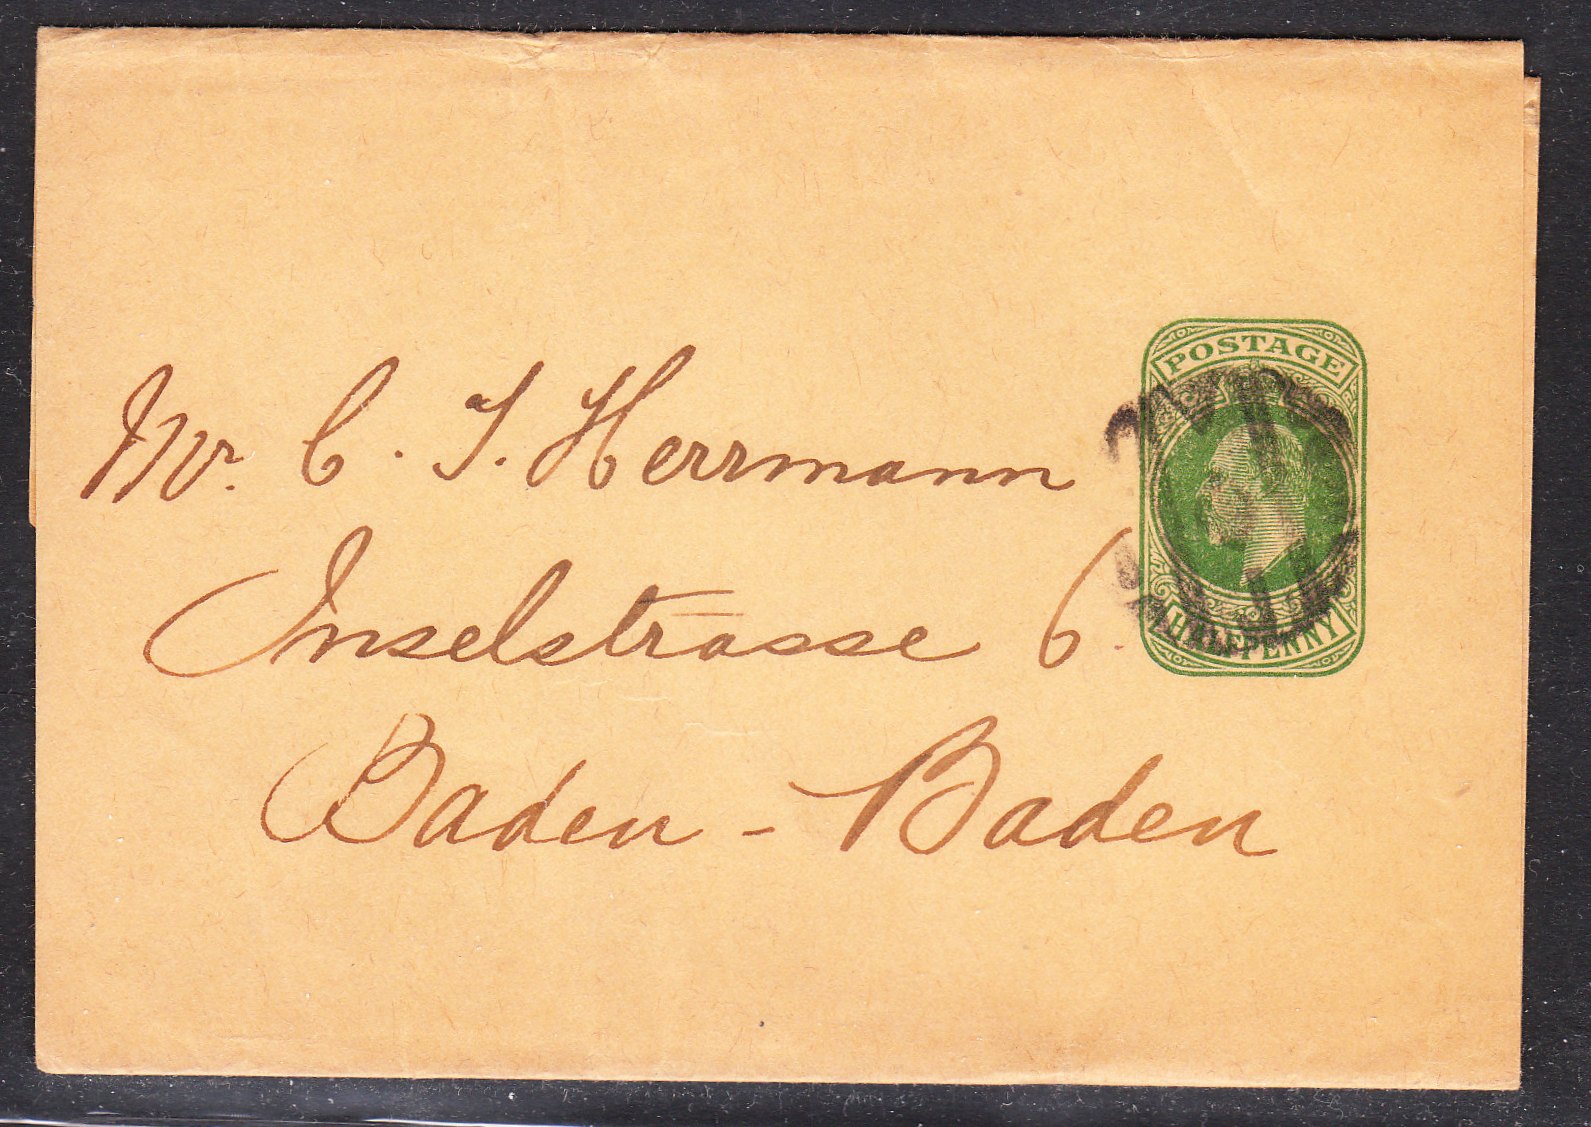 POSTAGE
HALFPENNY
Mr. C. J. Herrmann
Inselstrasse 6.
Baden - Baden